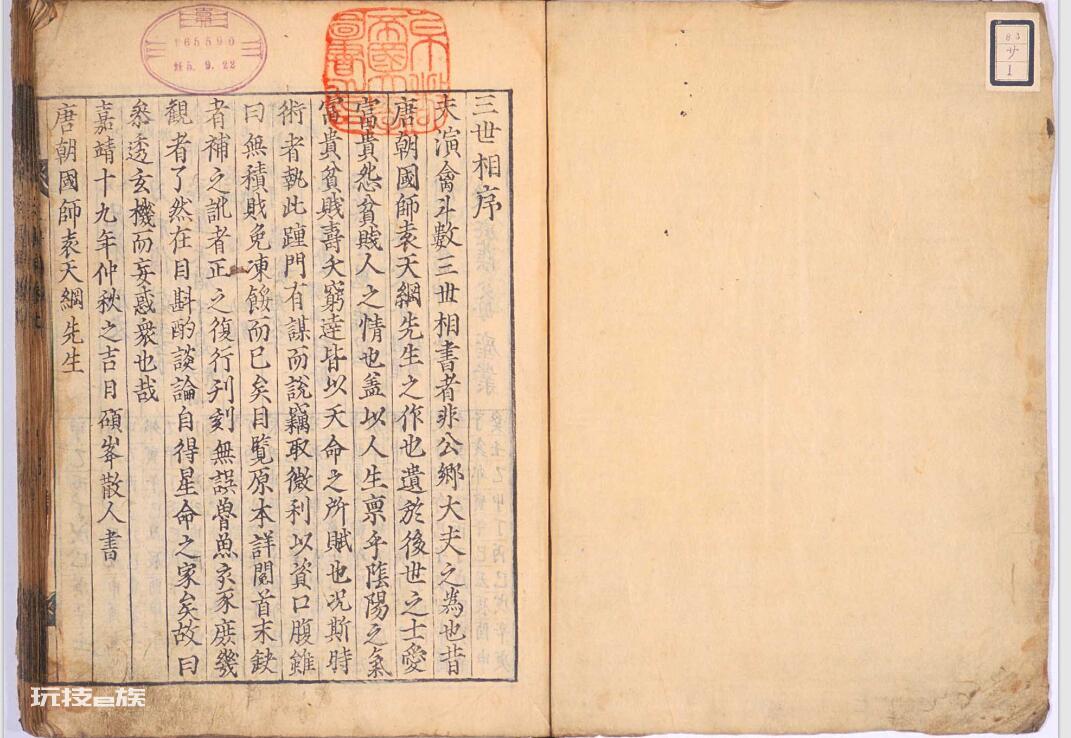 三世相序
夫演禽斗數三世相書者非公鄉大夫之為也昔
唐朝國師袁天綱先生之作也遺於後世之士愛
富貴怨貧賤人之情也盖以人生禀乎陰陽之氣
富貴貧賎壽夭窮逹皆以天命之所賦也况斯時
術者執此踵門有謀而說竊取微利以資口腹雖
曰無積財免凍餒而已矣目覽原本詳閱首末缺
者補之訛者正之復行刋刻無誤魯魚亥豕庶幾
觀者了然在目斟酌談論自得星命之家矣故曰
叅透玄機而妄惑衆也哉
嘉靖十九年仲秋之吉月碩峯散人書
唐朝國師袁天綱先生
165590
5.9.22
83
サ
1
玩技e族